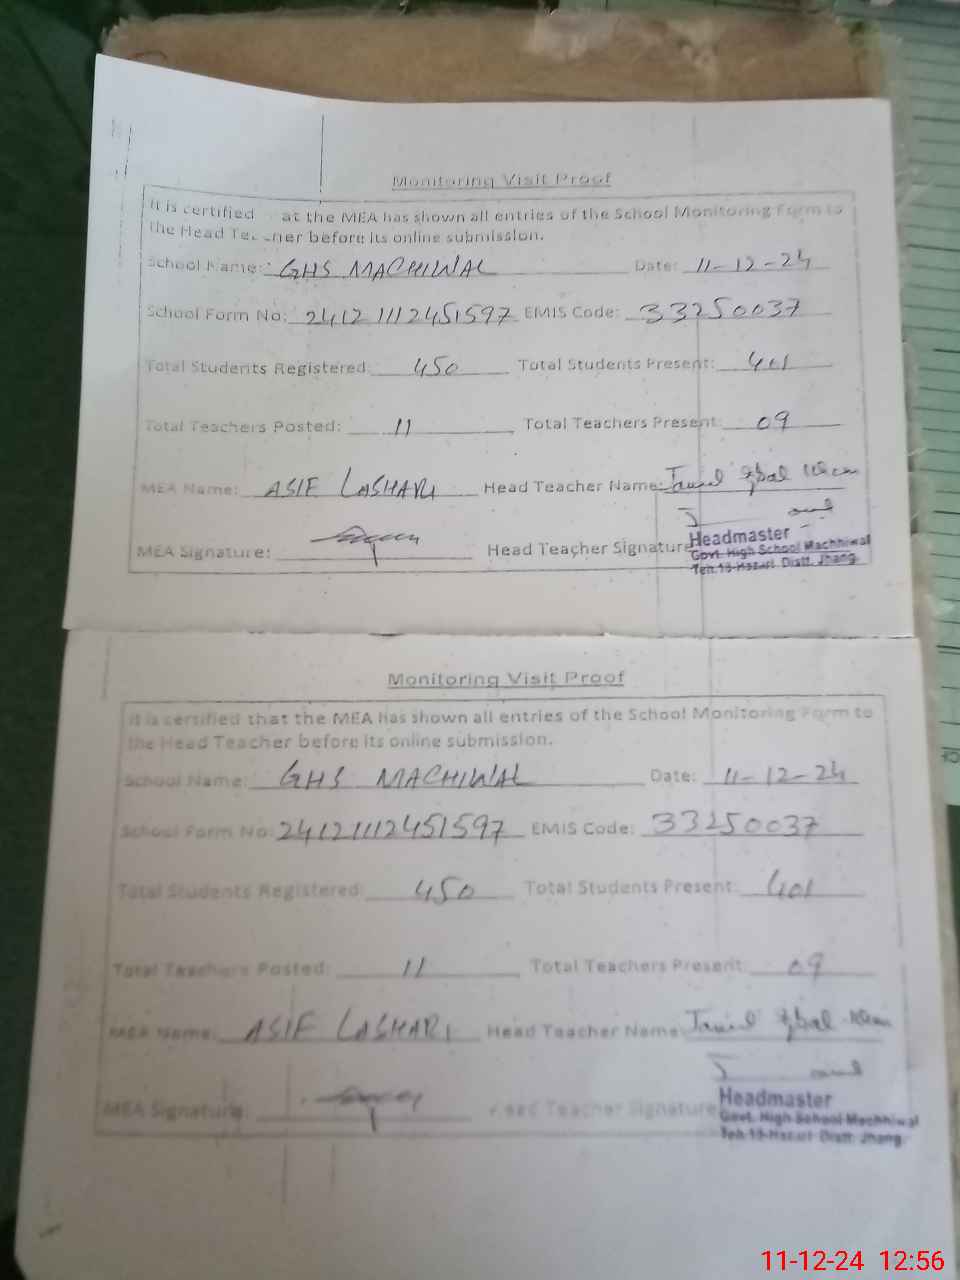 Monitoring Visit Proof
It is certified at the MEA has shown all entries of the School Monitoring Form to
the Head Teacher before its online submission.
School Name: GHS MACHIWAL Date: 11-12-24
School Form No: 24121112451597 EMIS Code: 33250037
Total Students Registered: 450 Total Students Present: 401
Total Teachers Posted: 11 Total Teachers Present: 09
MEA Name: ASIF LASHARI Head Teacher Name:
MEA Signature: Head Teacher Signature
Headmaster
Govt. High School Machhiwal
Teh. 18-Hazari Distt. Jhang.
Monitoring Visit Proof
It is certified that the MEA has shown all entries of the School Monitoring Form to
the Head Teacher before its online submission.
School Name: GHS MACHIWAL Date: 11-12-24
School Form No: 24121112451597 EMIS Code: 33250037
Total Students Registered: 450 Total Students Present: 401
Total Teachers Posted: 11 Total Teachers Present: 09
MEA Name: ASIF LASHARI Head Teacher Name:
MEA Signature: Head Teacher Signature
Headmaster
Govt. High School Machhiwal
Teh. 18-Hazari Distt. Jhang.
11-12-24 12:56